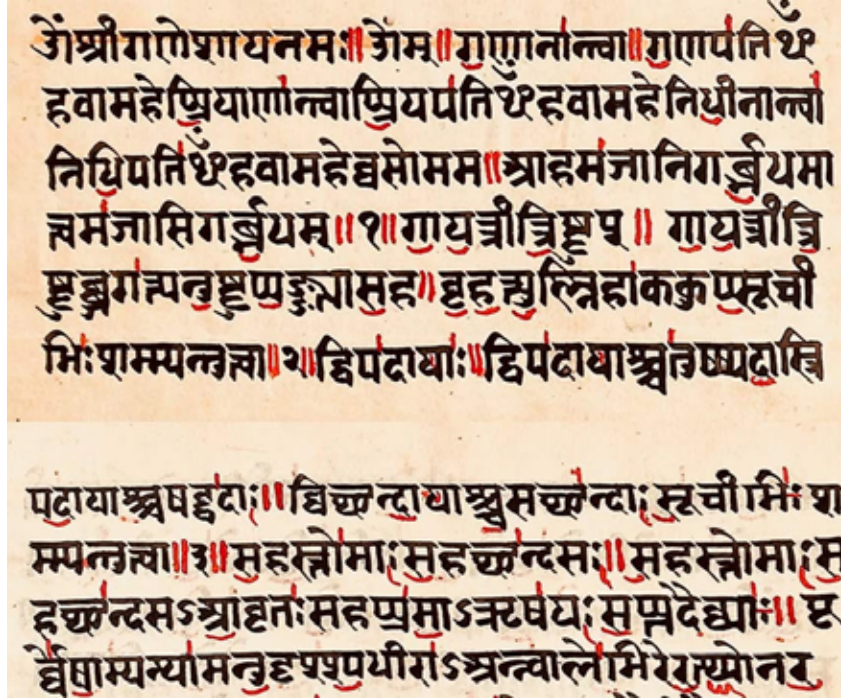 ॐश्रीगणेशायनमः॥ॐम्॥गणानान्त्वा॥गणपतिᳪ
हवामहेप्प्रियाणान्त्वाप्प्रियपतिᳪहवामहेनिधीनान्त्वा
निधिपतिᳪहवामहेव्वसोमम॥आहमजानिगर्ब्भधमा
त्वमजासिगर्ब्भधम्॥१॥गायत्रीत्रिष्टुप्॥गायत्रीत्रि
ष्टुब्जगत्यनुष्टुप्पङ्क्त्यासह॥बृहत्युष्णिहाककुप्प्सूची
भिःशम्म्यन्तुत्वा॥२॥द्विपदायाः॥द्विपदायाश्चतुष्पदास्त्रि
पदायाश्चषट्पदाः॥व्विच्छन्दायाश्चसच्छन्दाःसूचीभिःश
म्म्यन्तुत्वा॥३॥सहस्तोमाःसहच्छन्दसः॥सहस्तोमाःस
हच्छन्दसऽआवृतःसहप्प्रमाऽऋषयःसप्तदैव्याः॥पू
र्व्वेषाम्पन्थामनुदृश्यधीराऽअन्वालेभिरेरत्थ्योनर